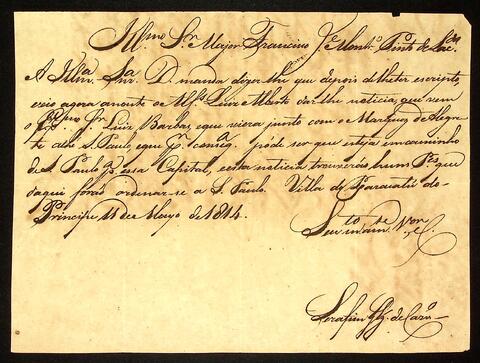 Illmo Sr Major Francisco Je Monto Pinto de
A Illma Snra D. manda dizer lhe que depois de lhe ter escrito,
veio agora a noite o Alfs Luis dar lhe noticia, que vem
o Illmo Sr Luiz Barba, e que viera junto com o Marquez de Alegre-
te athe S. Paulo, e que pr conseqa póde ser que esteja em caminho
de S. Paulo pa essa Capital, e esta noticia trouxerão huns que
daqui forão ordenar-se a S. Paulo. Villa de do
Principe 11 de Mayo de 1814.
De Vmce
mto Vor
e C.
Serafim Glz. de